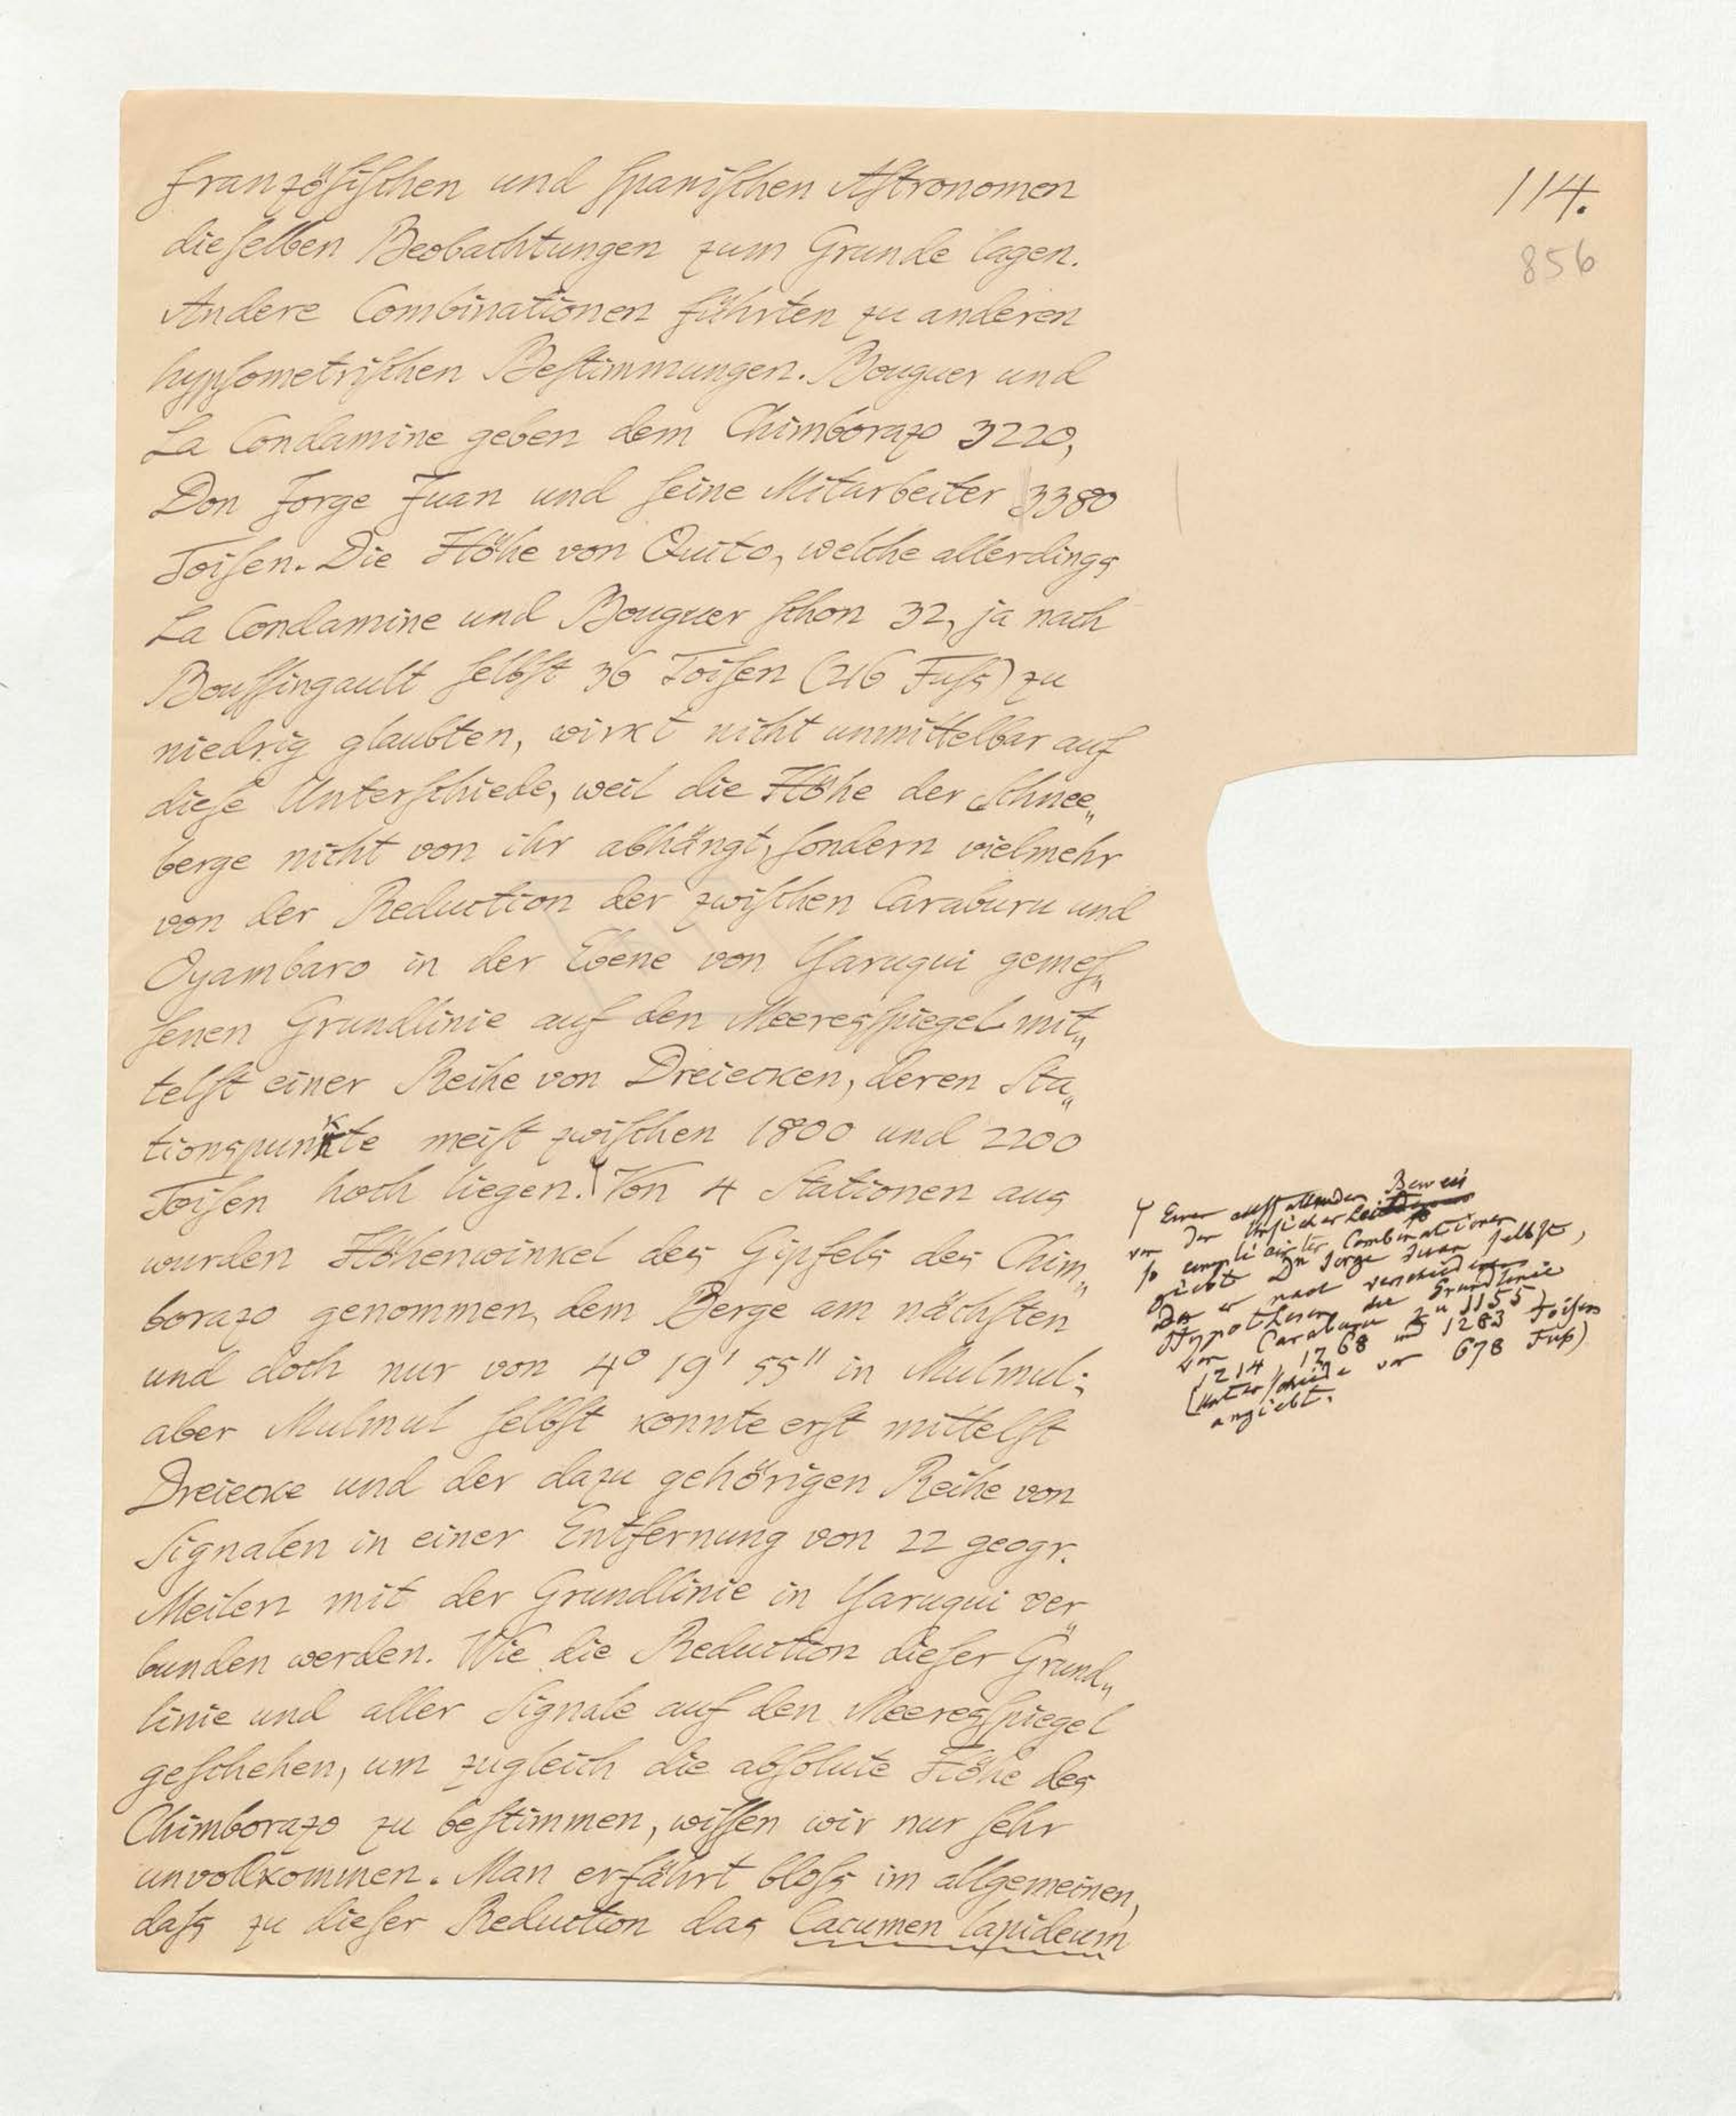 114.
856
französischen und spanischen Astronomen
dieselben Beobachtungen zum Grunde lagen.
Andere Combinationen führten zu anderen
hypsometrischen Bestimmungen. Bouguer und
La Condamine geben dem Chimborazo 3220,
Don Jorge Juan und seine Mitarbeiter 3380
Toisen. Die Höhe von Quito, welche allerdings
La Condamine und Bouguer schon 32, ja nach
Boussingault selbst 36 Toisen (216 Fuss) zu
niedrig glaubten, wirkt nicht unmittelbar auf
diese Unterschiede, weil die Höhe der Schnee„
berge nicht von ihr abhängt, sondern vielmehr
von der Reduction der zwischen Caraburu und
Oyambaro in der Ebene von Yaruqui gemes„
senen Grundlinie auf den Meeresspiegel mit„
telst einer Reihe von Dreiecken, deren Sta„
tionspunkte meist zwischen 1800 und 2200
Toisen hoch liegen. Von 4 Stationen aus
wurden Höhenwinkel des Gipfels des Chim„
borazo genommen, dem Berge am nächsten
und doch nur von 4° 19' 55" in Mulmul;
aber Mulmul selbst konnte erst mittelst
Dreiecke und der dazu gehörigen Reihe von
Signalen in einer Entfernung von 22 geogr.
Meilen mit der Grundlinie in Yaruqui ver„
bunden werden. Wie die Reduction dieser Grund„
linie und aller Signale auf den Meeresspiegel
geschehen, um zugleich die absolute Höhe des
Chimborazo zu bestimmen, wissen wir nur sehr
unvollkommen. Man erfährt bloss im allgemeinen,
dass zu dieser Reduction das Cacumen lapideum
Einen auffallenden Beweis
von der Unsicherheit
so complicirter Combinationen
giebt Dn Jorge Juan selbst,
der er nach verschiedenen
Hypothesen die Grundlinie
von Caraburu zu 1155,
1214, 1268 und 1283 Toisen
(Unterschiede von 678 Fuß)
angiebt.